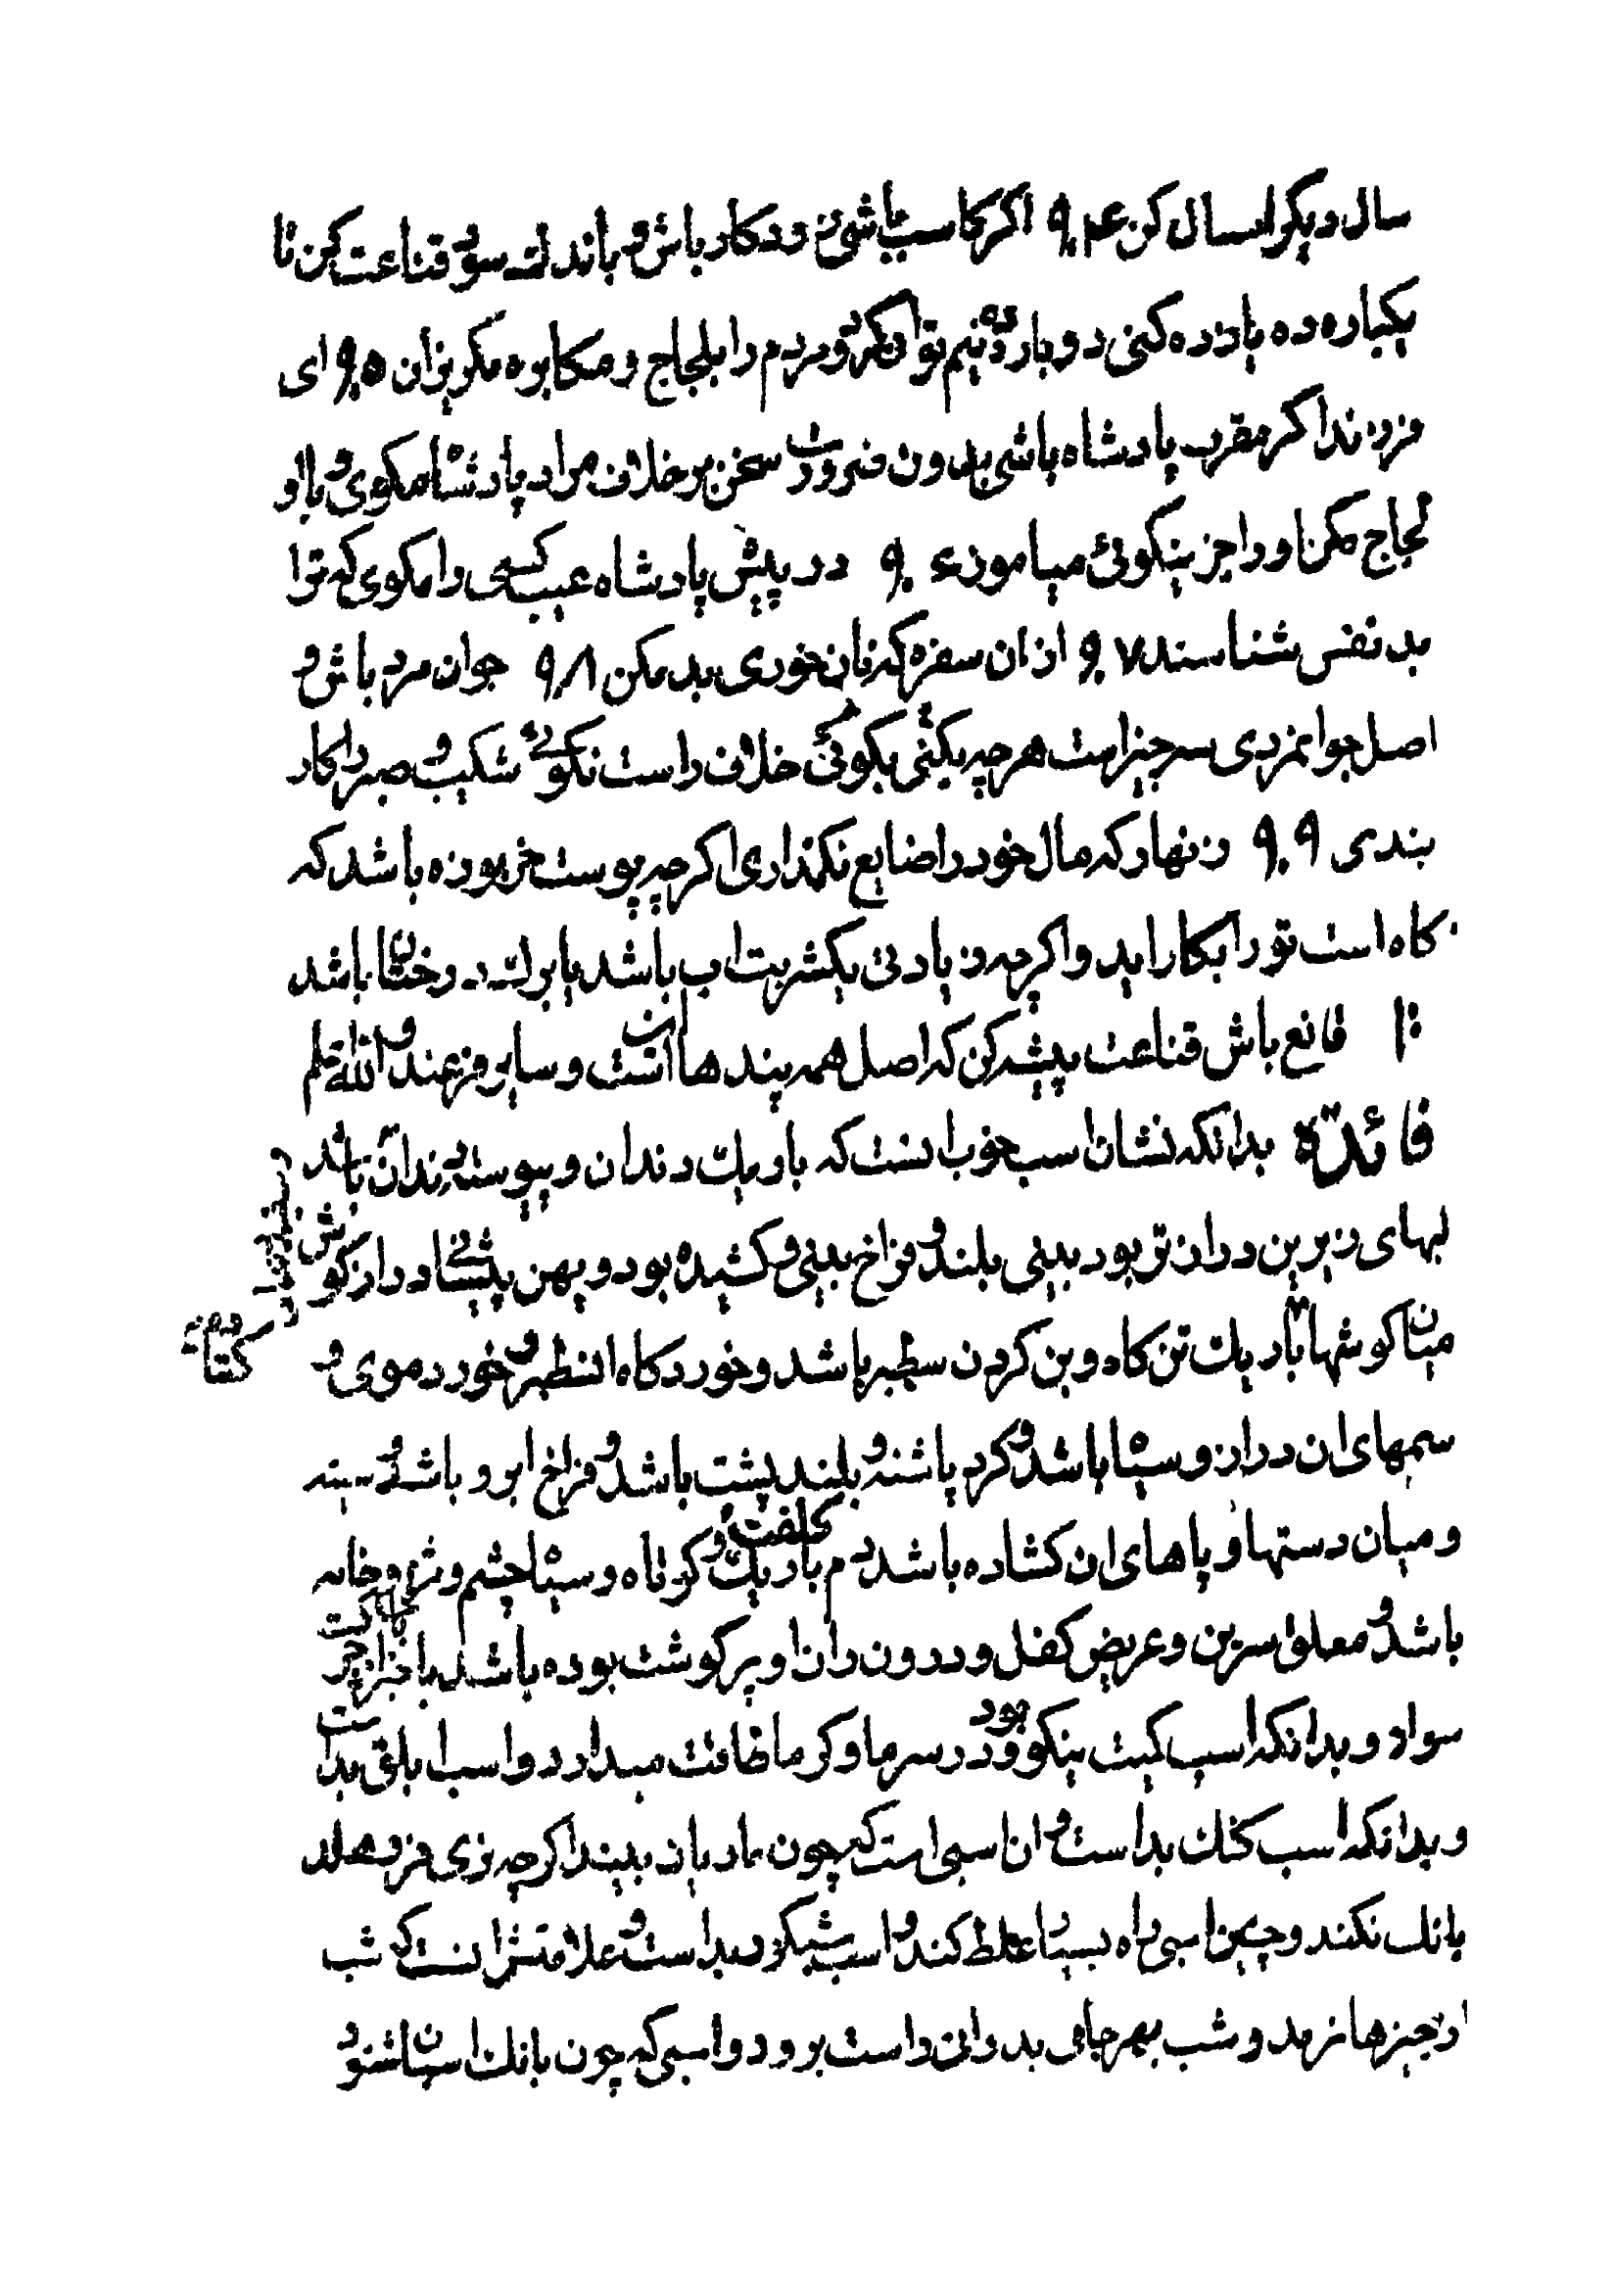 سال دیکر امسال کن ۹۰۴ اکر کاسب باشی زود کار باش و باندک سود قناعت کن تا
یکباره ده یازده کنی دو بار ده نیم توان کرد و مردم را بلجاج و مکابره مکریزان ۹۰۵ ای
فرزند اکر مقرب پادشاه باشی بدون ضرورت سخن بر خلاف مراد پادشاه مکوی و با او
لجاج مکن او را جز بنیکوئی میاموز ۹۰۶ در پیش پادشاه عیب کسی را مکوی که ترا
بد نفس شناسند ۹۰۷ از ان سفره که نان خوری بد مکن ۹۰۸ جوان مرد باش و
اصل جوانمردی سه چیز است هرچه بکنی بکوئی خلاف راست نکوئی شکیب و صبر را کار
بندی ۹۰۹ زنهار که مال خود را ضایع نکذاری اکرچه پوست خربوزه باشد که
کاه است تو را بکار اید و اکرچه زیادتی یکشربت اب باشد یا برک درختان باشد
قانع باش قناعت پیشه کن که اصل همه پندها انست و سایر فرعند و الله اعلم
فائدة بدانکه نشان اسب خوب انست که باریک دندان و پیوسته دندان باشد
لبهای زیرین دراز تر بود بینی بلند و فراخ بینی و کشیده بود و پهن پیشانی و دراز کوش
میان کوشها باریک تن کاه و بن کردن سطبر باشد و خورد کاه ان سطبر و خورد موی و
سمهای ان دراز و سیاه باشد و کرد پاشنه و بلند پشت باشد و فراخ ابرو باشد و سینه
و میان دستها و پاهای ان کشاده باشد دم باریک و کلفت و کوتاه و سیاه چشم و مژه و خایه
باشد و معلق سرین و عریض کفل و درون ران او پر کوشت بوده باشد با خبر از حرکت
سوار و بدانکه اسب کمیت نیکو بود و در سرما و کرما طاقت میدارد و اسب ابلق بد است
و بدانکه اسب کنک بد است و ان اسبی است که چون مادیان بیند اکرچه نری فرو هلد
بانک نکند و چنین اسبی راه بسیار غلط کند و اسب شبکور بد است و علامتش انست که شب
از چیزها نرمد و شب بهر جای بد رانی راست برود و اسبی که چون بانک اسبان شنود